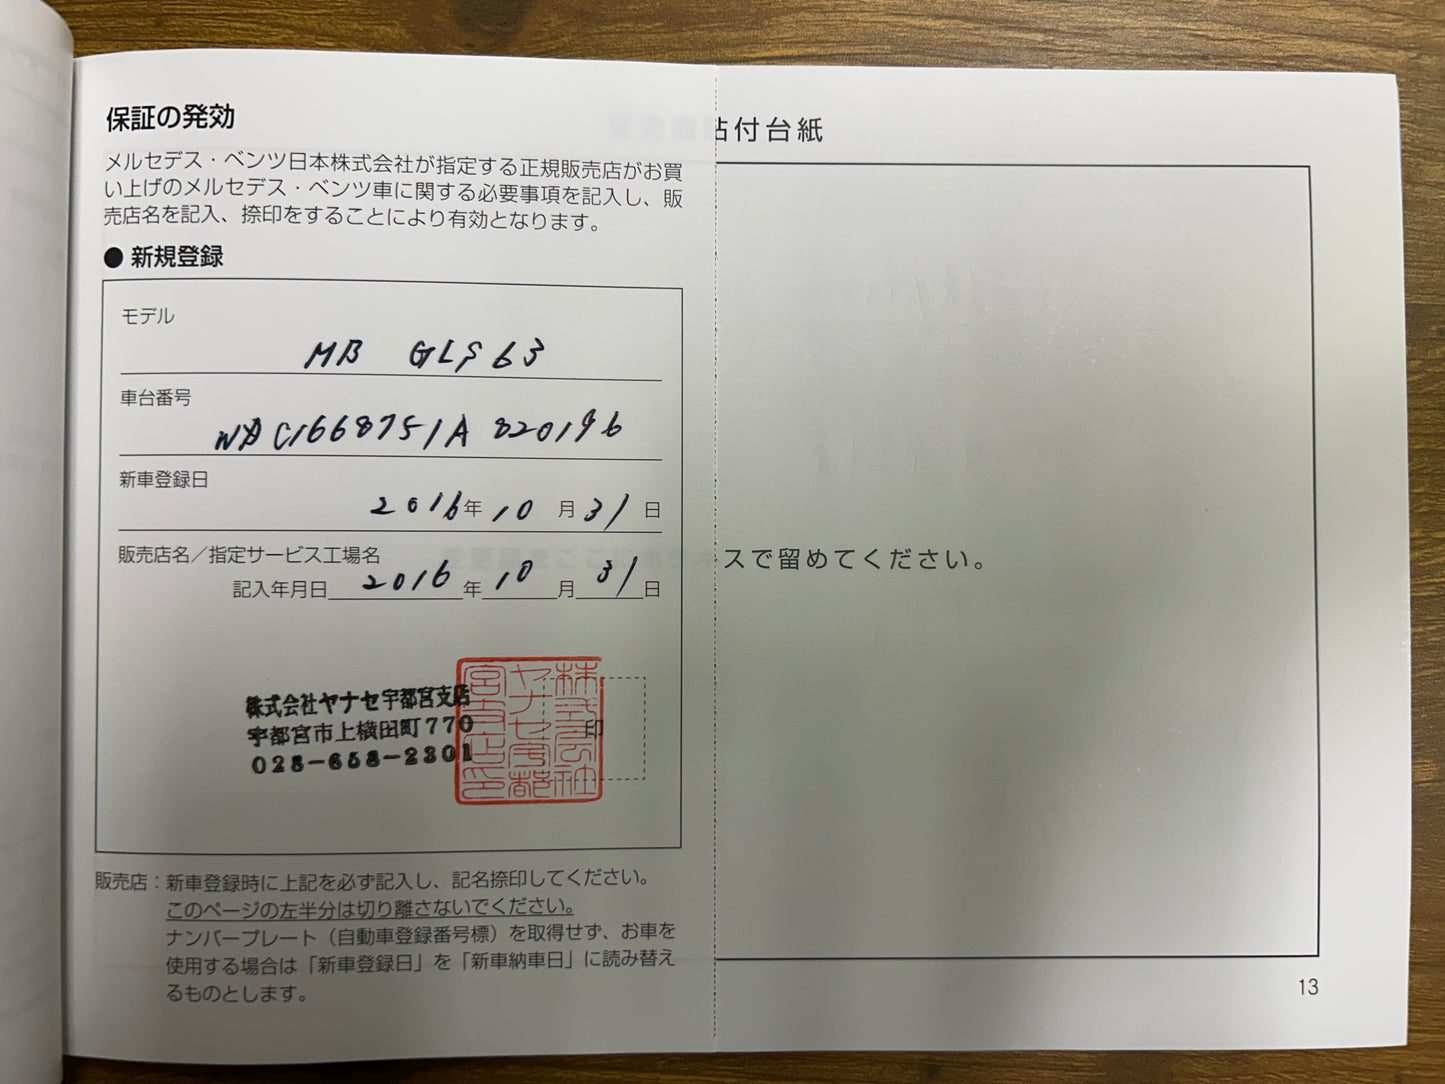 保証の発効
メルセデス・ベンツ日本株式会社が指定する正規販売店がお買
い上げのメルセデス・ベンツ車に関する必要事項を記入し、販
売店名を記入、捺印をすることにより有効となります。
● 新規登録
モデル
MB GLS63
車台番号
WDC1668751A820196
新車登録日
2016年 10 月 31 日
販売店名／指定サービス工場名
記入年月日 2016 年 10 月 31 日
株式会社ヤナセ宇都宮支店
宇都宮市上横田町770
028-658-2301
印
株式会社
ヤナセ宇都
宮支店印
販売店：新車登録時に上記を必ず記入し、記名捺印してください。
このページの左半分は切り離さないでください。
ナンバープレート（自動車登録番号標）を取得せず、お車を
使用する場合は「新車登録日」を「新車納車日」に読み替え
るものとします。
貼付台紙
スで留めてください。
13